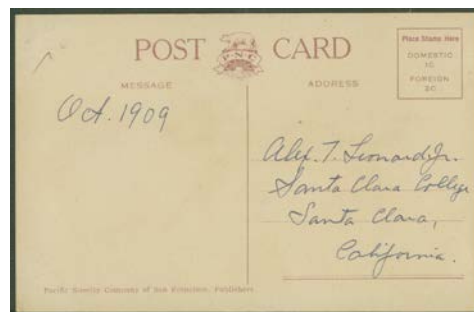 POST CARD
P.N.C.
Place Stamp Here
DOMESTIC
1C
FOREIGN
2C
MESSAGE
ADDRESS
Oct. 1909
Alex. T. Leonard Jr.
Santa Clara College
Santa Clara,
California.
Pacific Novelty Company of San Francisco, Publishers